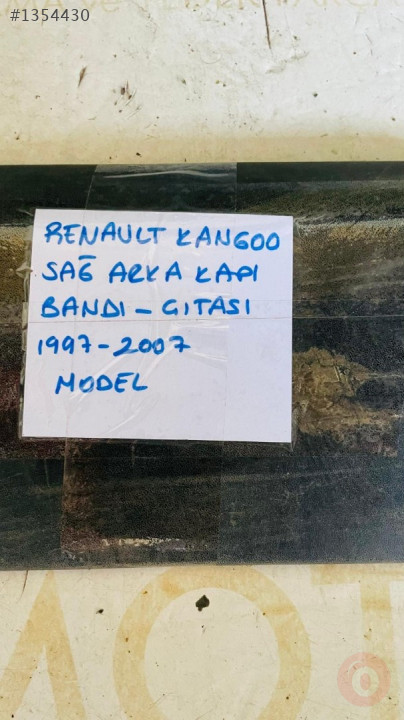 #1354430
RENAULT KANGOO
SAĞ ARKA KAPI
BANDI - GITASI
1997-2007
MODEL